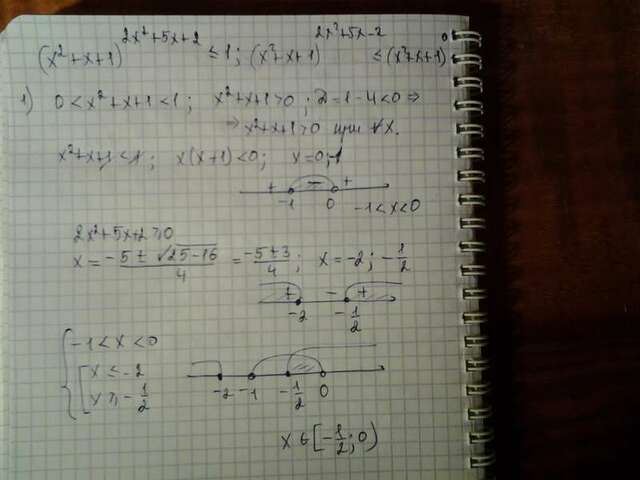 (x²+x+1)^(2x²+5x+2) ≤ 1; (x²+x+1)^(2x²+5x-2) ≤ (x²+x+1)^0
1) 0 < x²+x+1 < 1; x²+x+1 > 0; D = 1-4 < 0 ⇒
⇒ x²+x+1 > 0 при ∀x.
x²+x+1 < 1; x(x+1) < 0; x = 0; -1
+ - +
-1 0 -1 < x < 0
2x²+5x+2 ≥ 0
x = (-5 ± √(25-16))/4 = (-5±3)/4; x = -2; -1/2
+ - +
-2 -1/2
{ -1 < x < 0
[ x ≤ -2
x ≥ -1/2
-2 -1 -1/2 0
x ∈ [-1/2; 0)